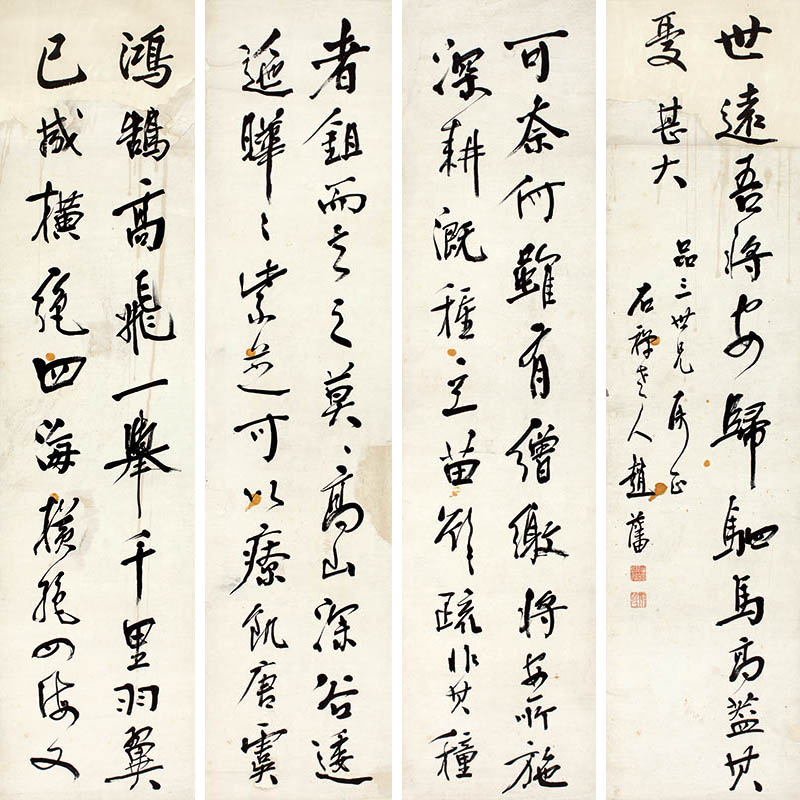 鴻鵠高飛一舉千里羽翼
已成橫絕四海橫絕四海又
可奈何雖有矰繳將安所施
深耕溉種立苗欲疏非其穜
者鉏而去之莫〻高山深谷逶
迤曄〻紫芝可以療飢唐虞
世遠吾將安歸駟馬高蓋其
憂甚大
品三世兄屬正
石禪老人趙藩